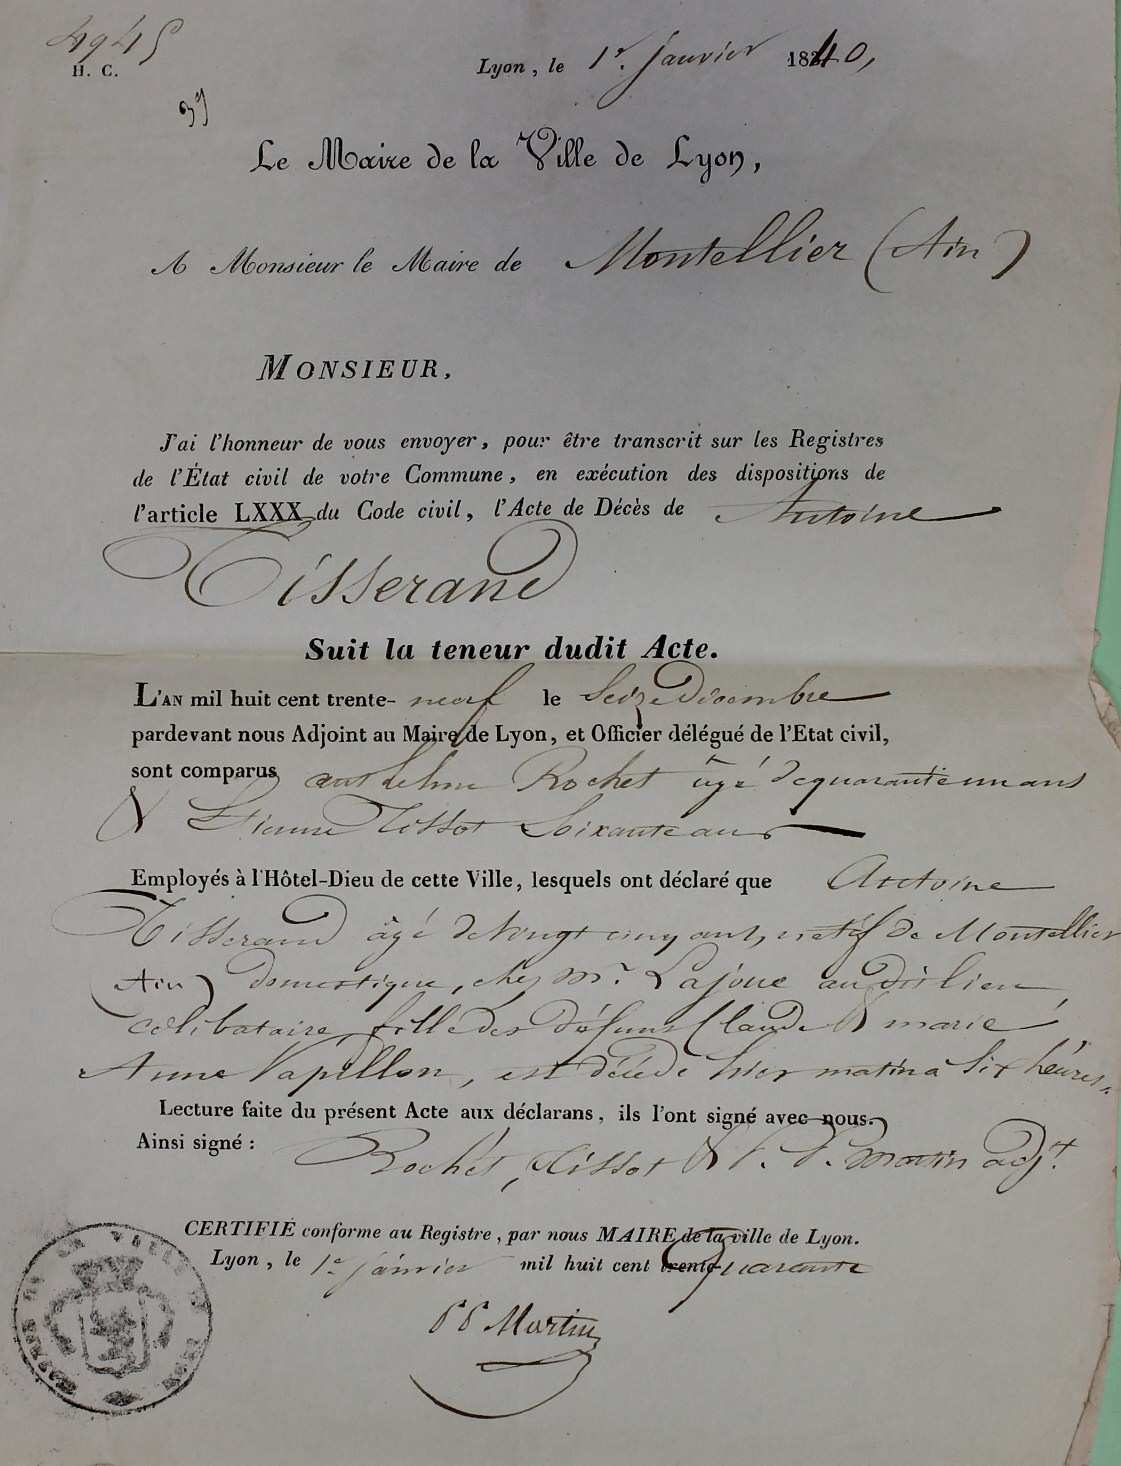 4945
H. C.
39
Lyon, le 1er. Janvier 1840,
Le Maire de la Ville de Lyon,
A Monsieur le Maire de Montellier (Ain)
MONSIEUR,
J'ai l'honneur de vous envoyer, pour être transcrit sur les Registres
de l'État civil de votre Commune, en exécution des dispositions de
l'article LXXX du Code civil, l'Acte de Décès de Antoine
Tisserand
Suit la teneur dudit Acte.
L'AN mil huit cent trente-neuf le Seize Décembre
pardevant nous Adjoint au Maire de Lyon, et Officier délégué de l'Etat civil,
sont comparus Rochet âgé de quarante un ans
& Etienne Tissot Soixante ans
Employés à l'Hôtel-Dieu de cette Ville, lesquels ont déclaré que Antoine
Tisserand âgé de vingt cinq ans, natif de Montellier
(Ain) domestique, chez Mr. Lajoue audit lieu,
célibataire, fils des défuns Claude & marie
Anne Papillon, est décédé hier matin à six heures.
Lecture faite du présent Acte aux déclarans, ils l'ont signé avec nous.
Ainsi signé : Rochet, Tissot & P. P. Martin adjt.
CERTIFIÉ conforme au Registre, par nous MAIRE de la ville de Lyon.
Lyon, le 1er Janvier mil huit cent trente quarante
PP Martin